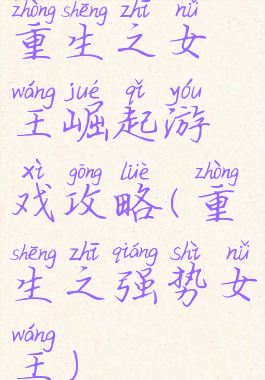 zhòng shēng zhī nǚ
重生之女
wáng jué qǐ yóu
王崛起游
xì gōng lüè zhòng
戏攻略(重
shēng zhī qiáng shì nǚ
生之强势女
wáng
王)